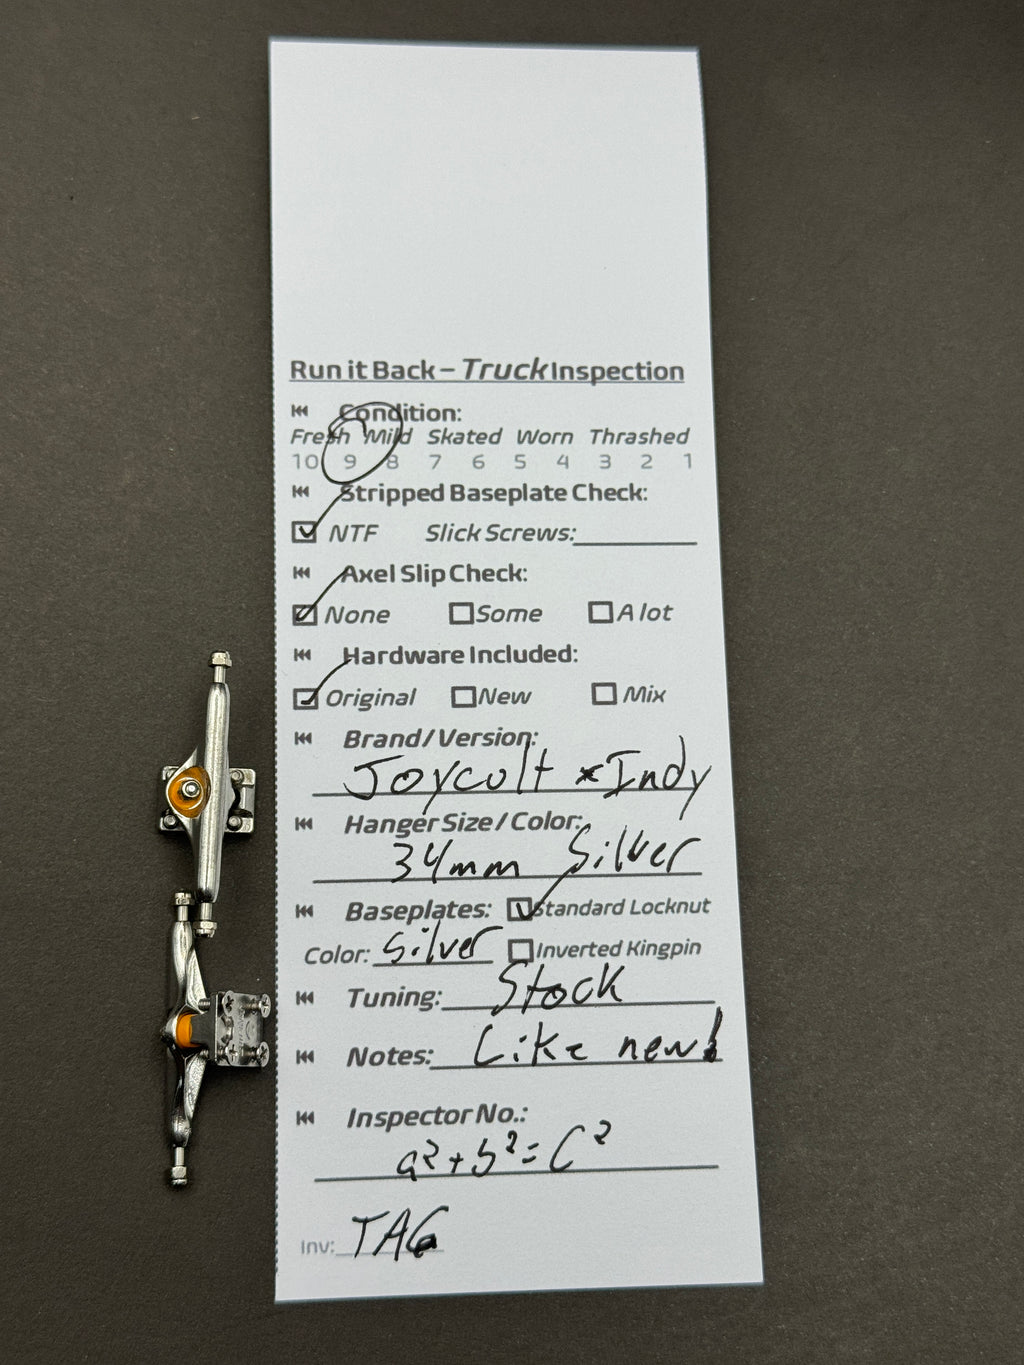 Run it Back – Truck Inspection
Condition:
Fresh Mild Skated Worn Thrashed
10 9 8 7 6 5 4 3 2 1
Stripped Baseplate Check:
NTF Slick Screws:
Axel Slip Check:
None Some A lot
Hardware Included:
Original New Mix
Brand/Version:
Joycult x Indy
Hanger Size / Color:
34mm Silver
Baseplates: Standard Locknut
Color: Silver Inverted Kingpin
Tuning: Stock
Notes: Like new!
Inspector No.:
a²+b²=c²
Inv: TAG